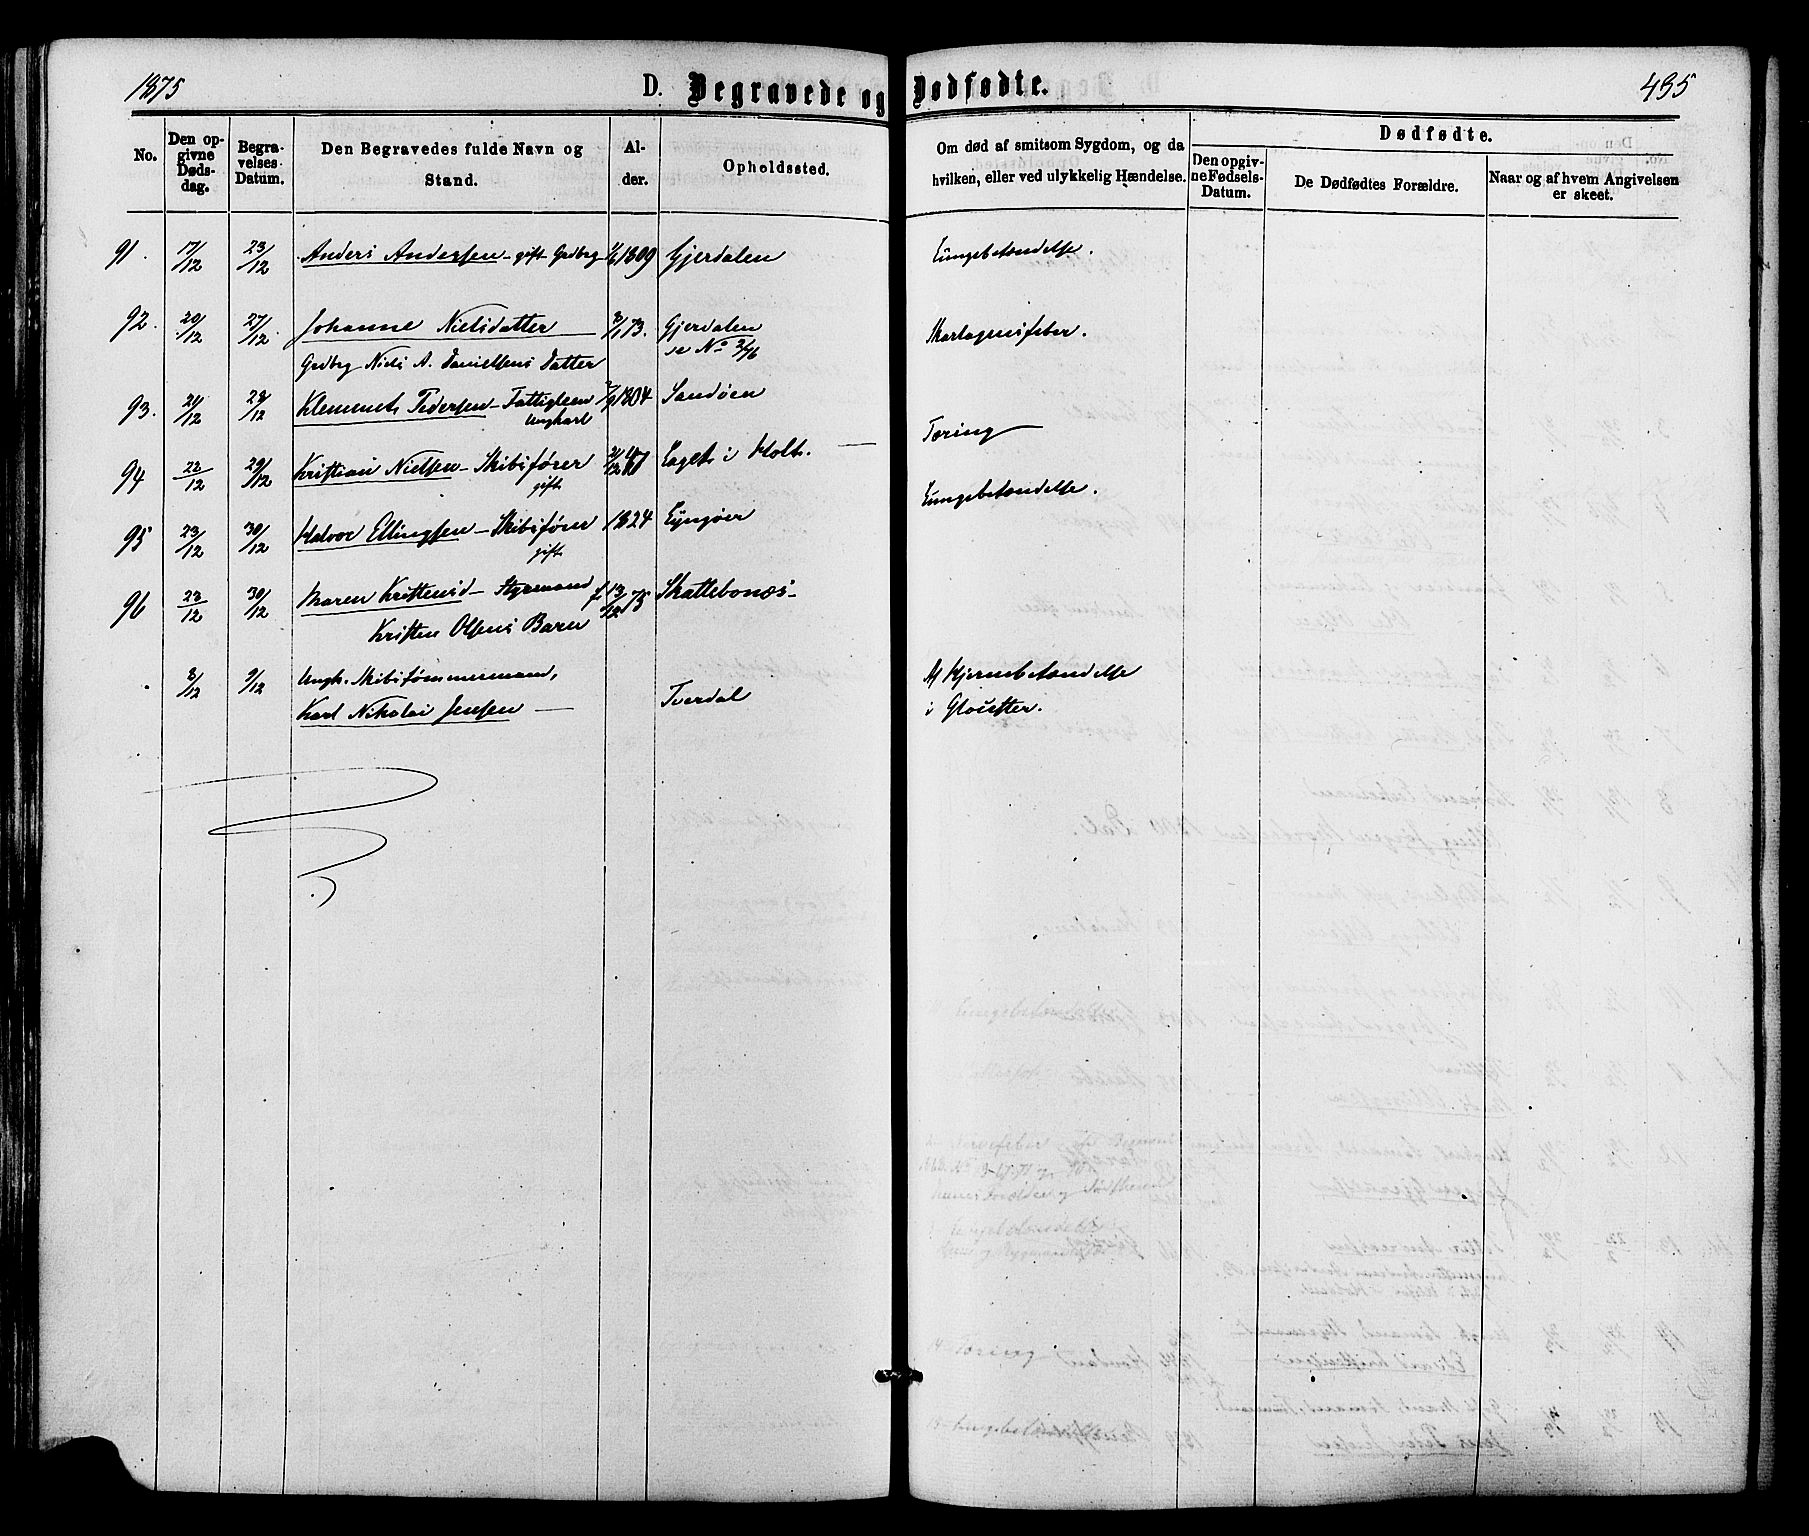 1875 D. Begravede og Dødfødte. 435
No. Den opgivne Dødsdag. Begravelses Datum. Den Begravedes fulde Navn og Stand. Alder. Opholdssted. Om død af smitsom Sygdom, og da hvilken, eller ved ulykkelig Hændelse. Dødfødte. Den opgivne Fødsels-Datum. De Dødfødtes Forældre. Naar og af hvem Angivelsen er skeet.
91. 17/12 23/12 Anders Andersen - gift Gdbrg 1809 Gjerdalen Lungebetændelse.
92. 20/12 27/12 Johanne Nielsdatter 73. Gjerdalen Skarlagensfeber.
Gdbrg Niels A. Daniellsens Datter se No
93. 21/12 28/12 Klemmet Pedersen - Fattiglem 1804 Sandøen
Ungkarl Tæring
94 22/12 29/12 Kristian Nielsen - Skibsfører Laget i Holt.
gift Lungebetændelse.
95 23/12 30/12 Halvor Ellingsen - Skibsfører 1824 Lyngøer
gift
96 23/12 30/12 Maren Kristensd - Styrmand f. 13/12 75 Skattebonæs -
Kristen Olsens Barn
8/12 9/12 Ungk. Skibstømmermand, Af Hjernebetændelse
Karl Nikolai Jensen Tverdal i Gloucster.